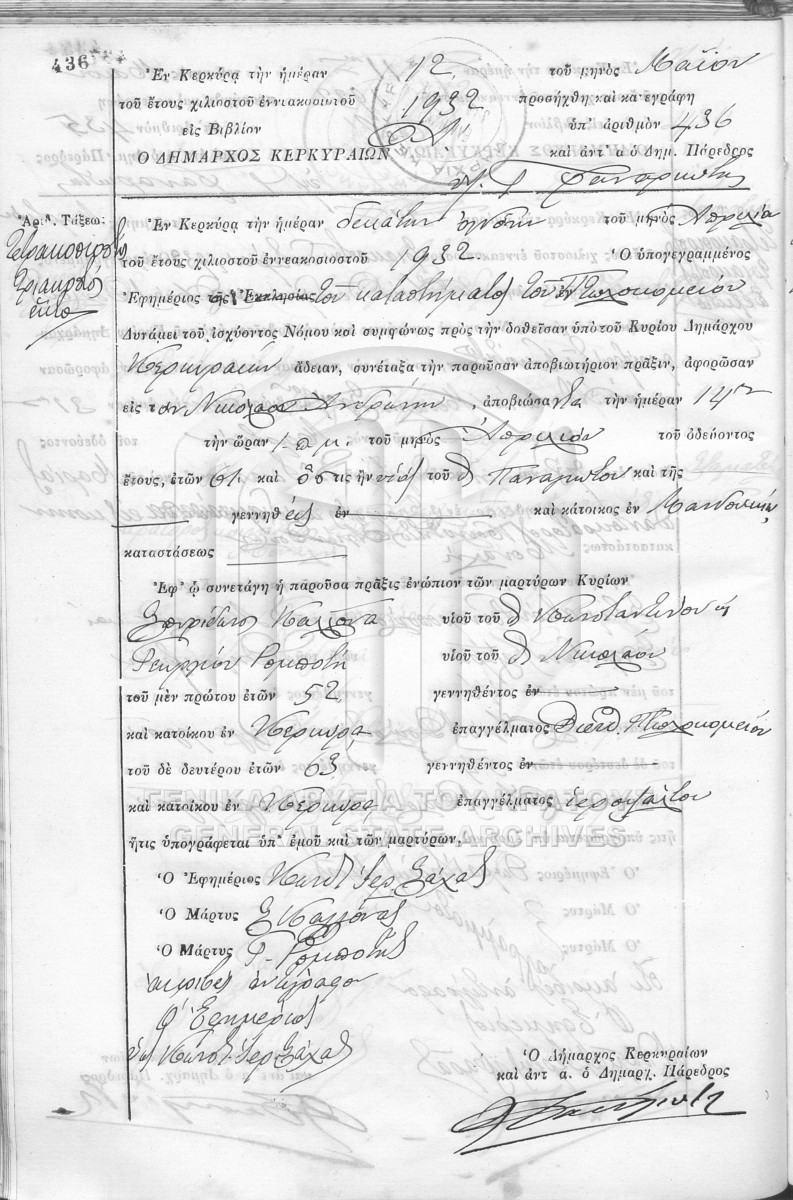 436
Ἐν Κερκύρᾳ τὴν ἡμέραν 12 τοῦ μηνὸς Μαΐου
τοῦ ἔτους χιλιοστοῦ ἐννεακοσιοστοῦ 1932 προσήχθη καὶ κατεγράφη
εἰς Βιβλίον ὑπ' ἀριθμὸν 436
Ὁ ΔΗΜΑΡΧΟΣ ΚΕΡΚΥΡΑΙΩΝ καὶ ἀντ' α ὁ Δημ. Πάρεδρος
Ἀριθ. Τάξεω:
Τετρακόσια
τριάκοντα
ἕξ
Ἐν Κερκύρᾳ τὴν ἡμέραν δεκάτην ὀγδόην τοῦ μηνὸς Ἀπριλίου
τοῦ ἔτους χιλιοστοῦ ἐννεακοσιοστοῦ 1932. Ὁ ὑπογεγραμμένος
Ἐφημέριος τῆς Ἐκκλησίας τοῦ καταστήματος τοῦ Πτωχοκομείου
Δυνάμει τοῦ ἰσχύοντος Νόμου καὶ συμφώνως πρὸς τὴν δοθεῖσαν ὑπὸ τοῦ Κυρίου Δημάρχου
Κερκυραίων ἄδειαν, συνέταξα τὴν παροῦσαν ἀποβιωτήριον πρᾶξιν, ἀφορῶσαν
εἰς τὸν Νικόλαον , ἀποβιώσαντα τὴν ἡμέραν 14ην
τὴν ὥραν 1 π.μ. τοῦ μηνὸς Ἀπριλίου τοῦ ὁδεύοντος
ἔτους, ἐτῶν 61 καὶ ὅστις ἦν υἱὸς τοῦ Παναγιώτου καὶ τῆς
γεννηθεὶς ἐν καὶ κάτοικος ἐν Μανδούκιον
καταστάσεως
Ἐφ' ᾧ συνετάγη ἡ παροῦσα πρᾶξις ἐνώπιον τῶν μαρτύρων Κυρίων
Σπυρίδωνος Καλλονᾶ υἱοῦ τοῦ Κωνσταντίνου ἢ
Γεωργίου Ρομποτῆ υἱοῦ τοῦ Νικολάου
τοῦ μὲν πρώτου ἐτῶν 52 γεννηθέντος ἐν
καὶ κατοίκου ἐν Κερκύρᾳ ἐπαγγέλματος Διευθ. Πτωχοκομείου
τοῦ δὲ δευτέρου ἐτῶν 63 γεννηθέντος ἐν
καὶ κατοίκου ἐν Κερκύρᾳ ἐπαγγέλματος ἱεροψάλτου
ΓΕΝΙΚΑ ΑΡΧΕΙΑ ΤΟΥ ΚΡΑΤΟΥΣ
GENERAL STATE ARCHIVES
ἥτις ὑπογράφεται ὑπ' ἐμοῦ καὶ τῶν μαρτύρων.
Ὁ Ἐφημέριος Κωνστ. Ἱερ.
Ὁ Μάρτυς Σ Καλλονᾶς
Ὁ Μάρτυς Γ. Ρομποτῆς
ἀκριβὲς ἀντίγραφον
Ὁ Ἐφημέριος
Κωνστ. Ἱερ.
Ὁ Δήμαρχος Κερκυραίων
καὶ ἀντ α. ὁ Δημαρχ. Πάρεδρος